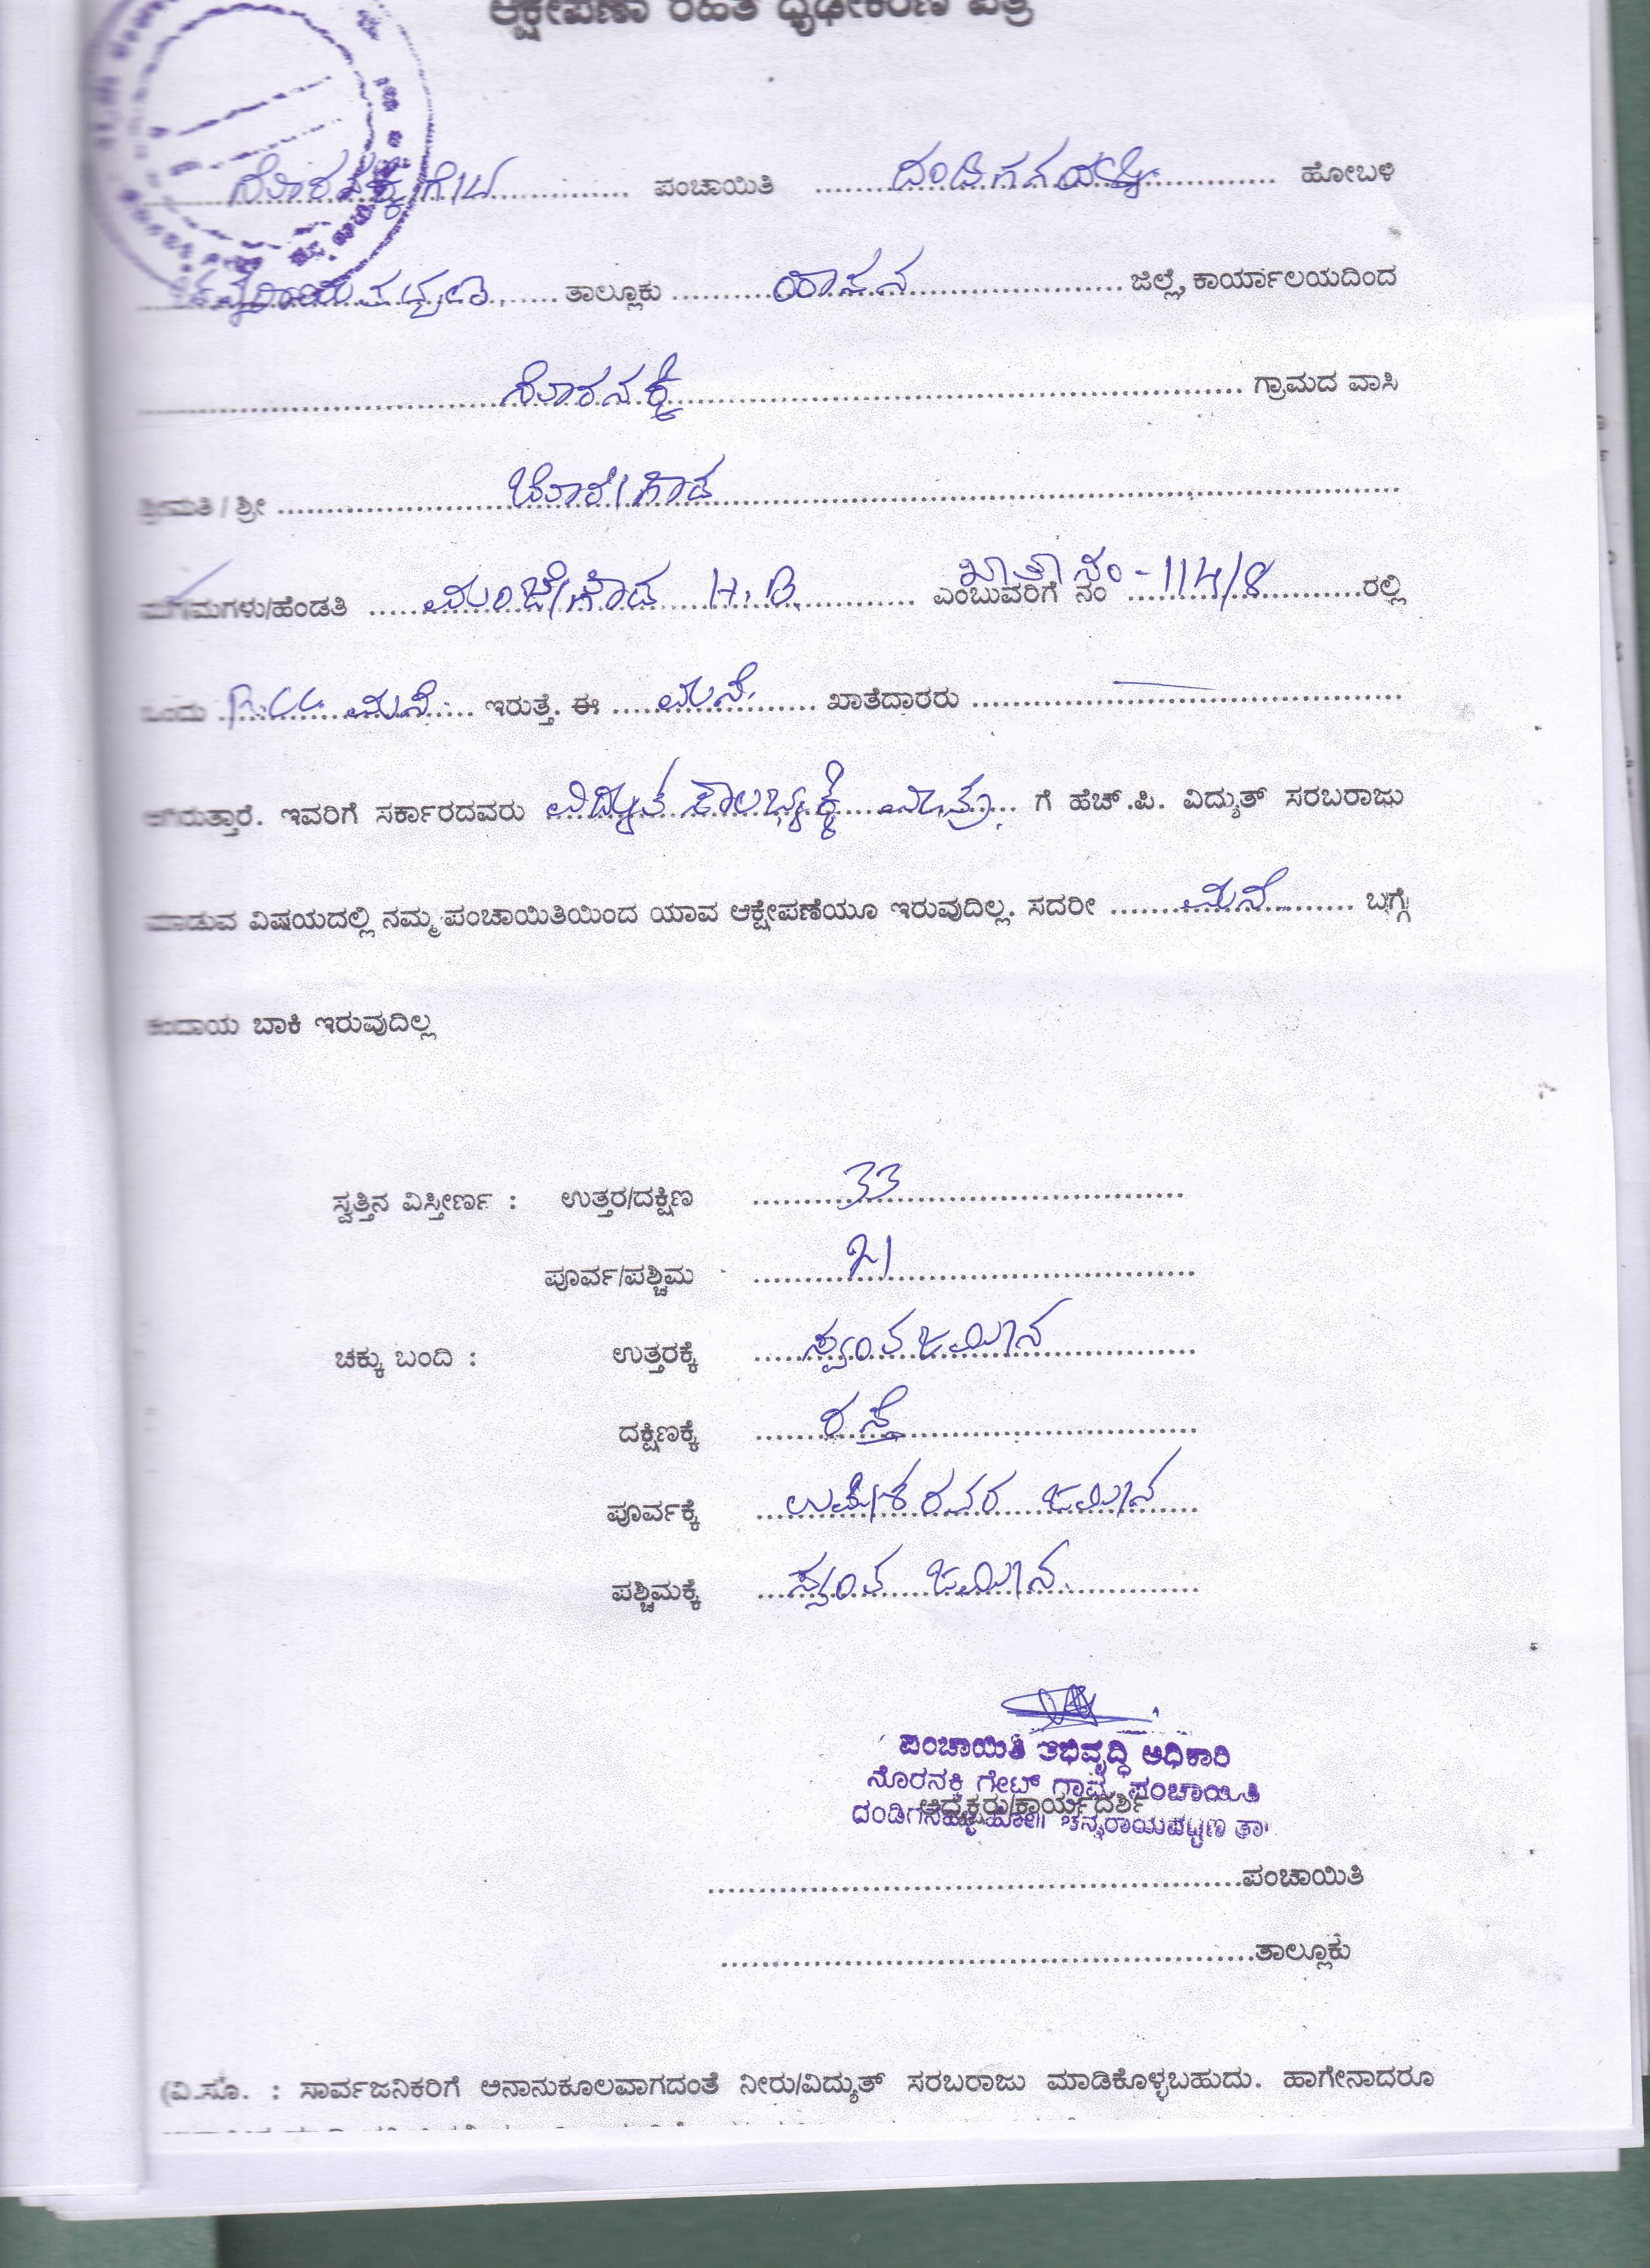 ಆಕ್ಷೇಪಣಾ ರಹಿತ ಧೃಢೀಕರಣ ಪತ್ರ
ನೊರನಕ್ಕಿ ಗೇಟ್ ಪಂಚಾಯಿತಿ ದಂಡಿಗನಹಳ್ಳಿ ಹೋಬಳಿ
ಚನ್ನರಾಯಪಟ್ಟಣ ತಾಲ್ಲೂಕು ಹಾಸನ ಜಿಲ್ಲೆ, ಕಾರ್ಯಾಲಯದಿಂದ
ನೊರನಕ್ಕಿ ಗ್ರಾಮದ ವಾಸಿ
ಶ್ರೀಮತಿ / ಶ್ರೀ ಬೋರೇಗೌಡ
ಮಗ/ಮಗಳು/ಹೆಂಡತಿ ಮಂಜೇಗೌಡ H.B. ಎಂಬುವರಿಗೆ ನಂ ಖಾತಾ ನಂ - 114/8 ರಲ್ಲಿ
ಒಂದು R.CC ಮನೆ ಇರುತ್ತೆ. ಈ ಮನೆ ಖಾತೆದಾರರು
ಆಗಿರುತ್ತಾರೆ. ಇವರಿಗೆ ಸರ್ಕಾರದವರು ವಿದ್ಯುತ್ ಸೌಲಭ್ಯಕ್ಕೆ ಮಾತ್ರ ಗೆ ಹೆಚ್.ಪಿ. ವಿದ್ಯುತ್ ಸರಬರಾಜು
ಮಾಡುವ ವಿಷಯದಲ್ಲಿ ನಮ್ಮ ಪಂಚಾಯಿತಿಯಿಂದ ಯಾವ ಆಕ್ಷೇಪಣೆಯೂ ಇರುವುದಿಲ್ಲ. ಸದರೀ ಮನೆ ಬಗ್ಗೆ
ಕಂದಾಯ ಬಾಕಿ ಇರುವುದಿಲ್ಲ
ಸ್ವತ್ತಿನ ವಿಸ್ತೀರ್ಣ : ಉತ್ತರ/ದಕ್ಷಿಣ 33
ಪೂರ್ವ/ಪಶ್ಚಿಮ 21
ಚಕ್ಕು ಬಂದಿ : ಉತ್ತರಕ್ಕೆ ಸ್ವಂತ ಜಮೀನ
ದಕ್ಷಿಣಕ್ಕೆ ರಸ್ತೆ
ಪೂರ್ವಕ್ಕೆ ಉಮೇಶರವರ ಜಮೀನ
ಪಶ್ಚಿಮಕ್ಕೆ ಸ್ವಂತ ಜಮೀನ
ಪಂಚಾಯಿತಿ ಅಭಿವೃದ್ಧಿ ಅಧಿಕಾರಿ
ನೊರನಕ್ಕಿ ಗೇಟ್ ಗ್ರಾಮ ಪಂಚಾಯಿತಿ
ಅಧ್ಯಕ್ಷರು/ಕಾರ್ಯದರ್ಶಿ
ದಂಡಿಗನಹಳ್ಳಿ ಹೋ|| ಚನ್ನರಾಯಪಟ್ಟಣ ತಾ||
ಪಂಚಾಯಿತಿ
ತಾಲ್ಲೂಕು
(ವಿ.ಸೂ. : ಸಾರ್ವಜನಿಕರಿಗೆ ಅನಾನುಕೂಲವಾಗದಂತೆ ನೀರು/ವಿದ್ಯುತ್ ಸರಬರಾಜು ಮಾಡಿಕೊಳ್ಳಬಹುದು. ಹಾಗೇನಾದರೂ